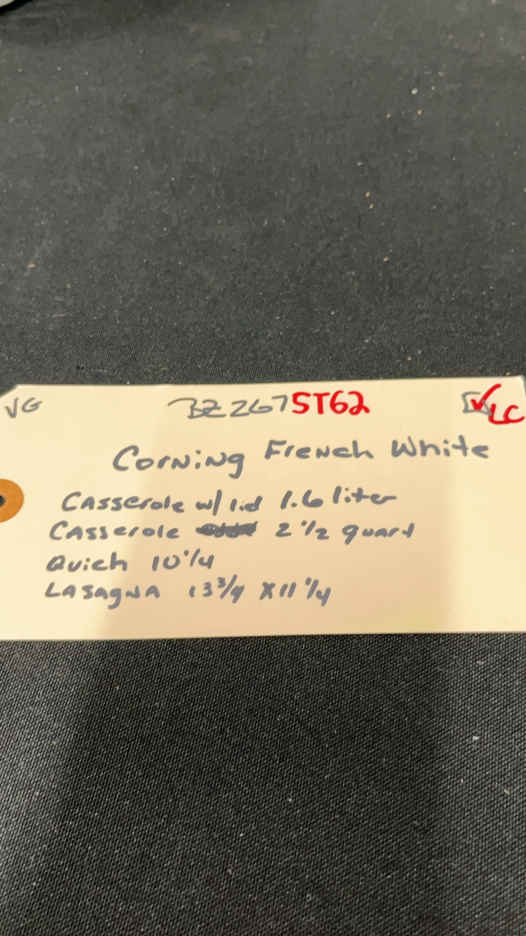 VG BZ2675T62 LC
Corning French White
Casserole w/ lid 1.6 liter
Casserole 2 1/2 quart
Quich 10 1/4
Lasagna 13 3/4 x 11 1/4